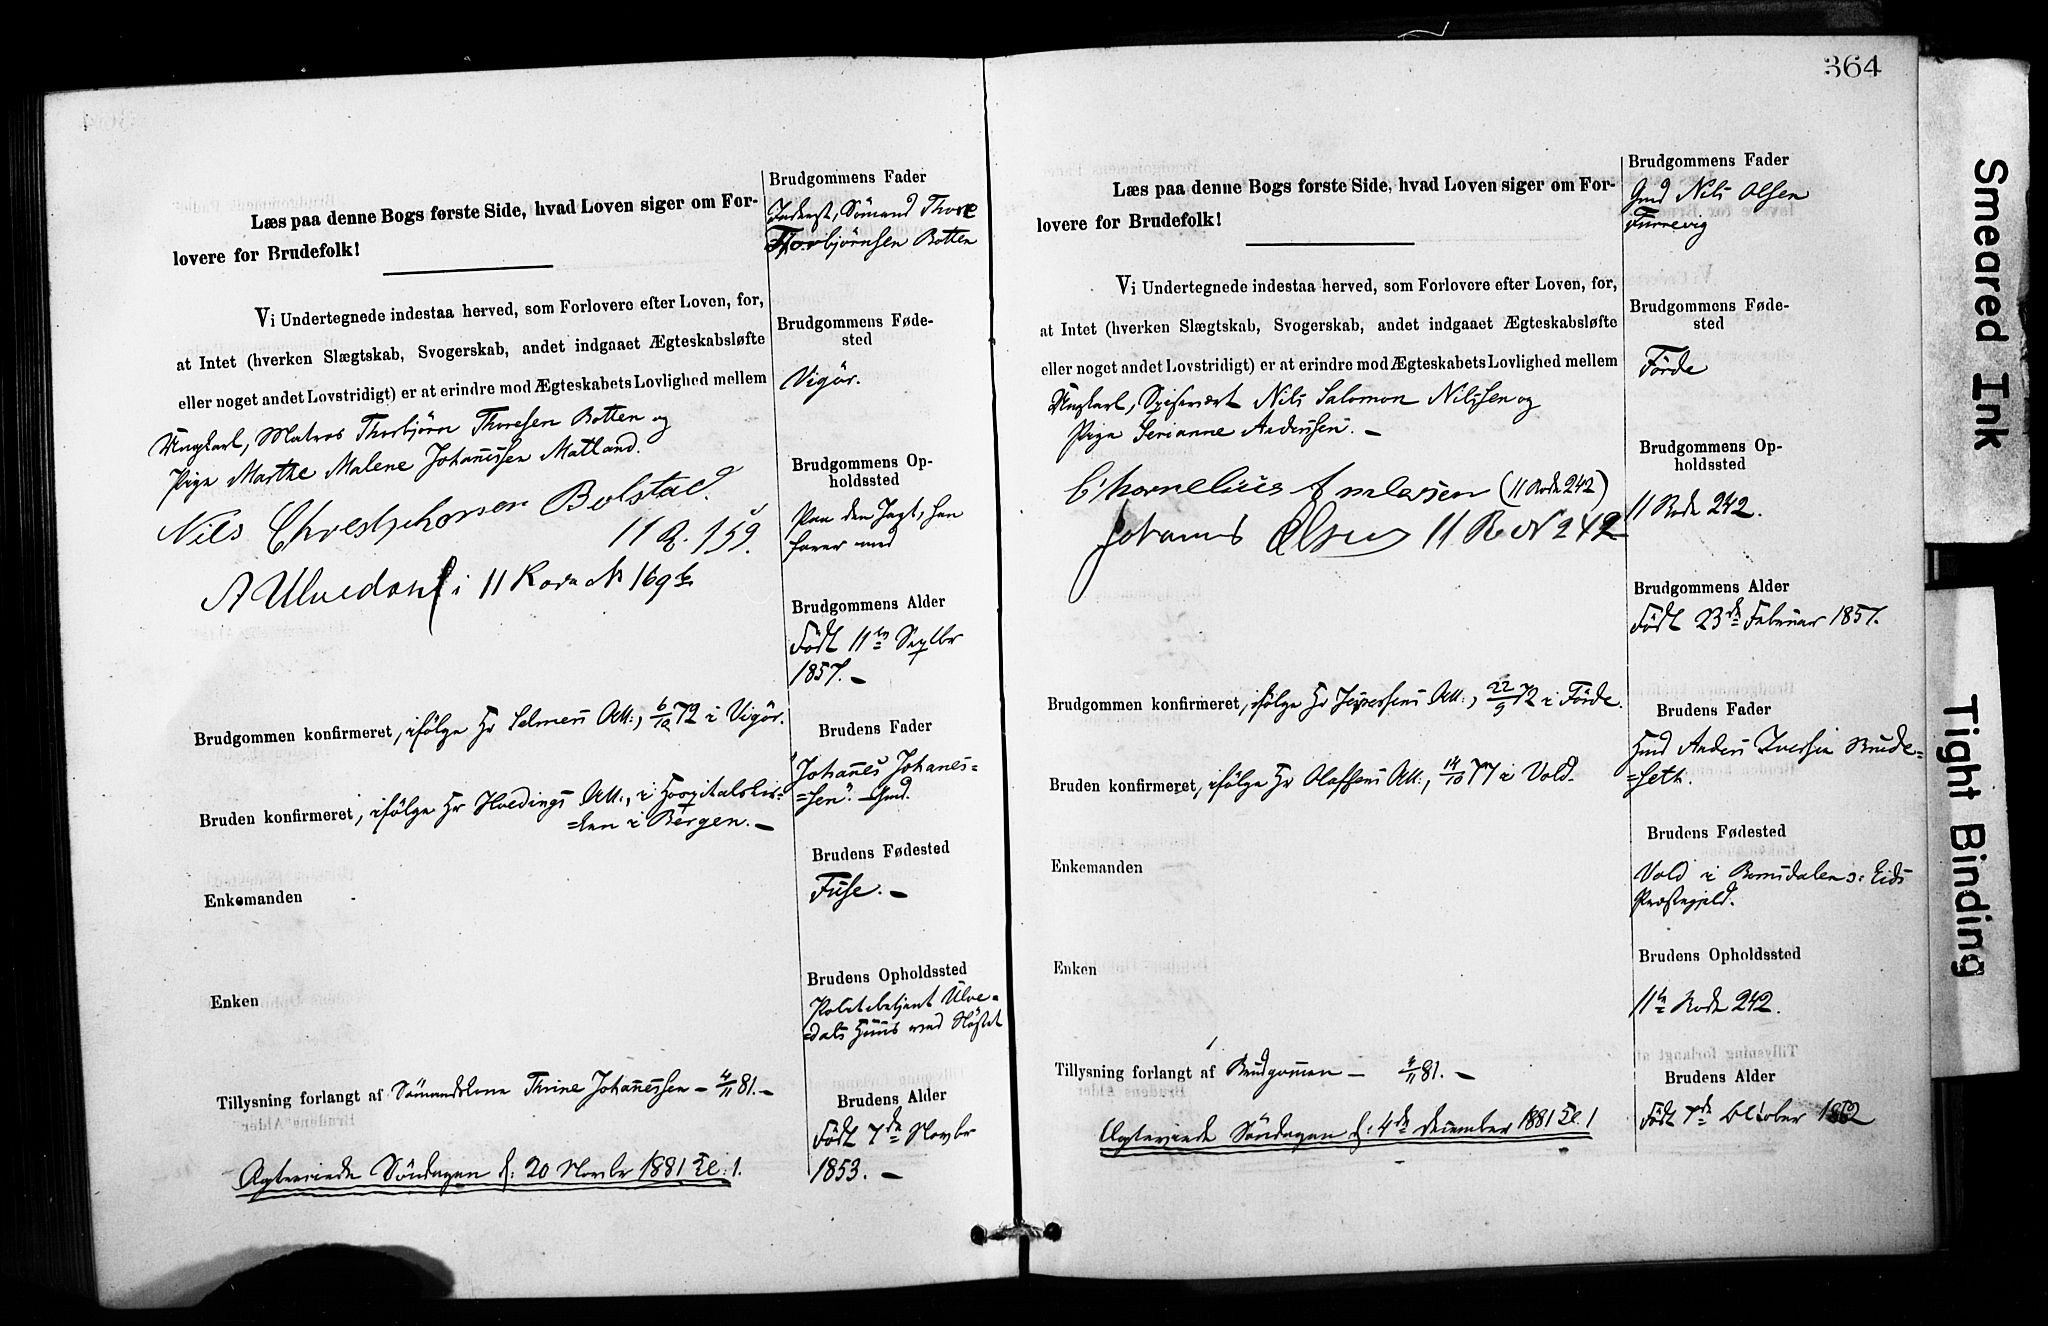 Læs paa denne Bogs første Side, hvad Loven siger om For-
lovere for Brudefolk!
Vi Undertegnede indestaa herved, som Forlovere efter Loven, for,
at Intet (hverken Slægtskab, Svogerskab, andet indgaaet Ægteskabsløfte
eller noget andet Lovstridigt) er at erindre mod Ægteskabets Lovlighed mellem
Ungkarl, Matros Thorbjørn Thoresen Botten og
Pige Marthe Malene Johanessen Matland.
Nils Christophersen Bolstad.
11 R. 159.
A Ulvedal i 11 Rode No 169 b
Brudgommen konfirmeret, ifølge Hr Selmers Att:, 6/10 72 i Vigør.
Bruden konfirmeret, ifølge Hr Hvedings Att:, i Hospitalskir-
=ken i Bergen. —
Enkemanden
Enken
Tillysning forlangt af Sömandskone Thrine Johanessen — 4/11 81. —
Ægteviede Söndagen d: 20 Novbr 1881 Kl: 1.
Brudgommens Fader
Inderst, Sömand Thore
Thorbjørnsen Botten
Brudgommens Føde-
sted
Vigör.
Brudgommens Op-
holdssted
Paa den Jagt, han
farer med
Brudgommens Alder
Födt 11te Septbr
1857. —
Brudens Fader
Johanes Johanes=
=sen. — Gmd.
Brudens Fødested
Fuse. —
Brudens Opholdssted
Politibetjent Ulve=
=dals Huus ved Nöstet
Brudens Alder
Födt 7de Novbr
1853. —
364
Læs paa denne Bogs første Side, hvad Loven siger om For-
lovere for Brudefolk!
Vi Undertegnede indestaa herved, som Forlovere efter Loven, for,
at Intet (hverken Slægtskab, Svogerskab, andet indgaaet Ægteskabsløfte
eller noget andet Lovstridigt) er at erindre mod Ægteskabets Lovlighed mellem
Ungkarl, Spisevært Nils Salomon Nilssen og
Pige Serianne Andersen. —
Chornelius (11 Rode 242)
Johannes Olsen 11 R No 242
Brudgommen konfirmeret, ifølge Hr Jespersens Att:, 22/9 72 i Förde.
Bruden konfirmeret, ifølge Hr Olafsens Att:, 14/10 77 i Vold.
Enkemanden
Enken
Tillysning forlangt af Brudgomen — 4/11 81. —
Ægteviede Söndagen d: 4de December 1881 Kl. 1
Brudgommens Fader
Gmd Nils Olsen
Furrevig
Brudgommens Føde-
sted
Förde
Brudgommens Op-
holdssted
11 Rode 242.
Brudgommens Alder
Födt 23de Februar 1857.
Brudens Fader
Hmd Anders Iversen Brude=
=seth.
Brudens Fødested
Vold i Romsdalen o: Eids
Præstegjeld.
Brudens Opholdssted
11te Rode 242.
Brudens Alder
Födt 7de Oktober 1862
Smeared Ink
Tight Binding